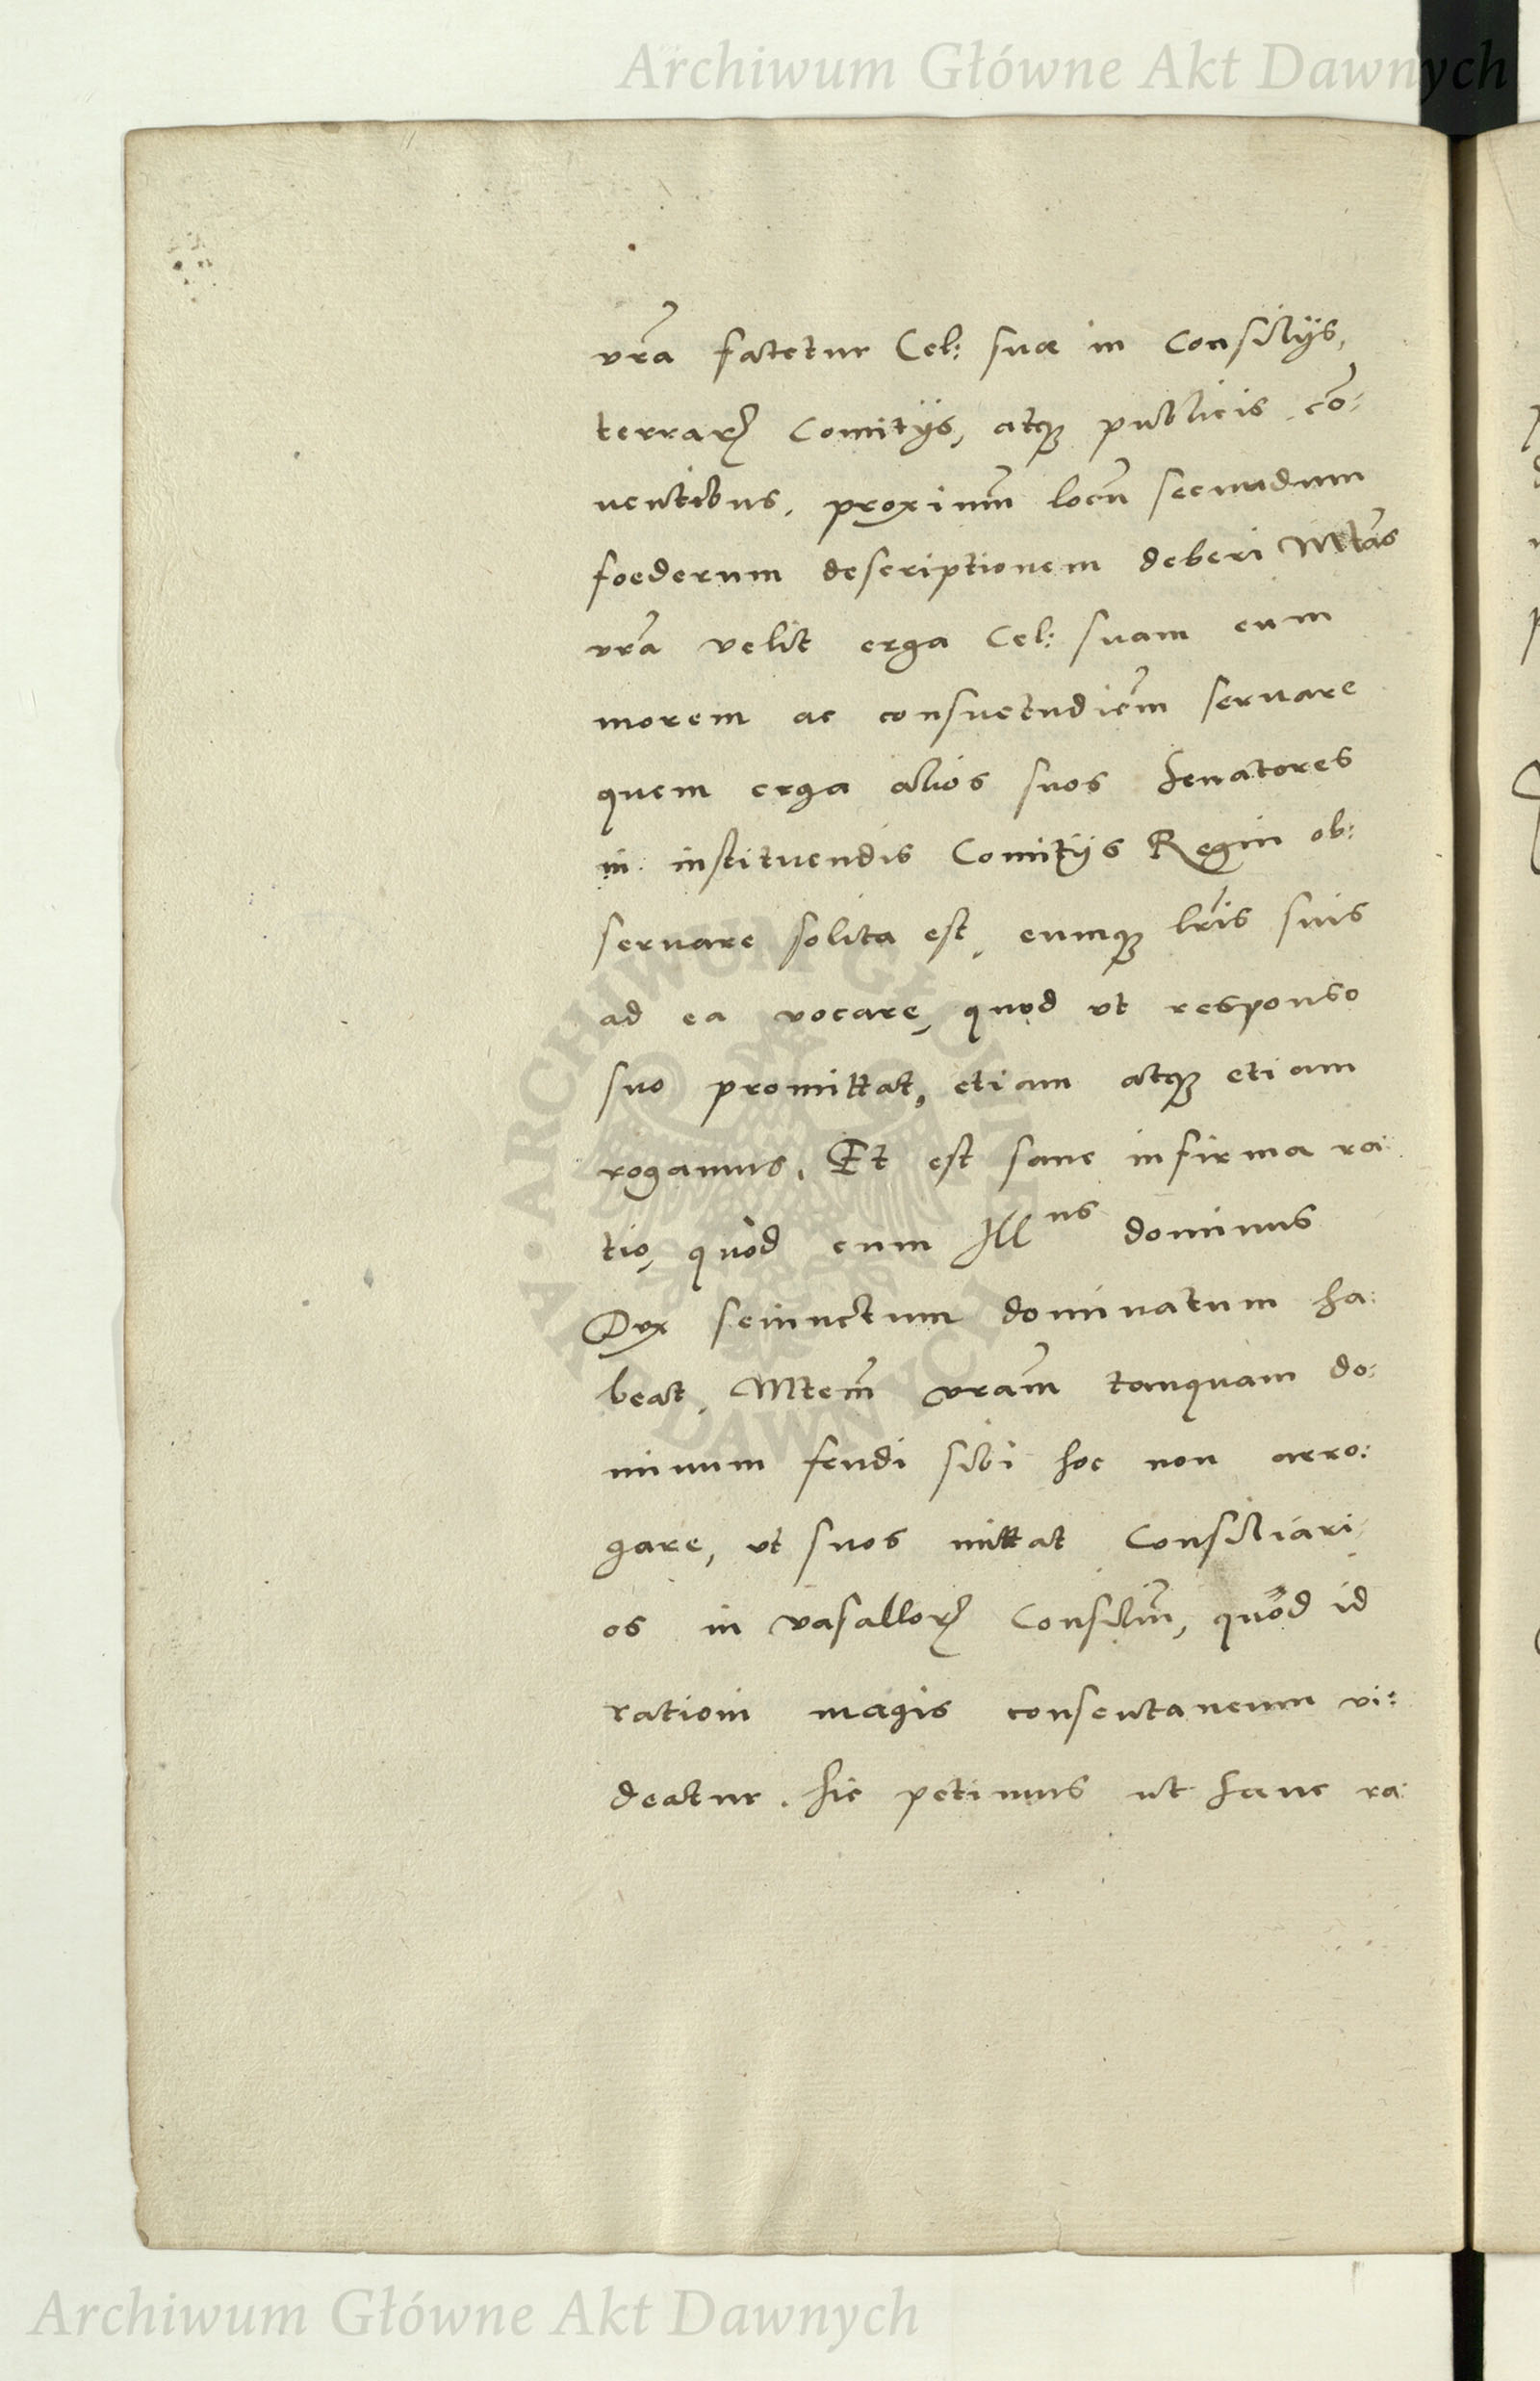 Archiwum Główne Akt Dawnych
vr̃a fatetur Cel: suæ in Consilijs,
terrarꝝ Comitijs, atqꝫ publicis cõ:
uentibus, proximũ locũ secundum
foederum descriptionem deberi Mtãs
vr̃a velit erga Cel: suam eum
morem ac consuetudiẽm seruare
quem erga alios suos Senatores
in instituendis Comitijs Regni ob:
seruare solita est, eumqꝫ lr̃is suis
ad ea vocare, quod vt responso
suo promittat, etiam atqꝫ etiam
rogamus. Et est sane infirma ra:
tio, quòd cum Illus dominus
Dux seiunctum dominatum ha:
beat, Mtem̃ vram̃ tanquam do:
minum feudi sibi hoc non arro:
gare, vt suos mittat Consiliari
os in vasallorꝝ Consiliũ, quòd id
rationi magis consentaneum vi:
deatur. hic petimus ut hanc ra:
ARCHIWUM GŁÓWNE AKT DAWNYCH
Archiwum Główne Akt Dawnych